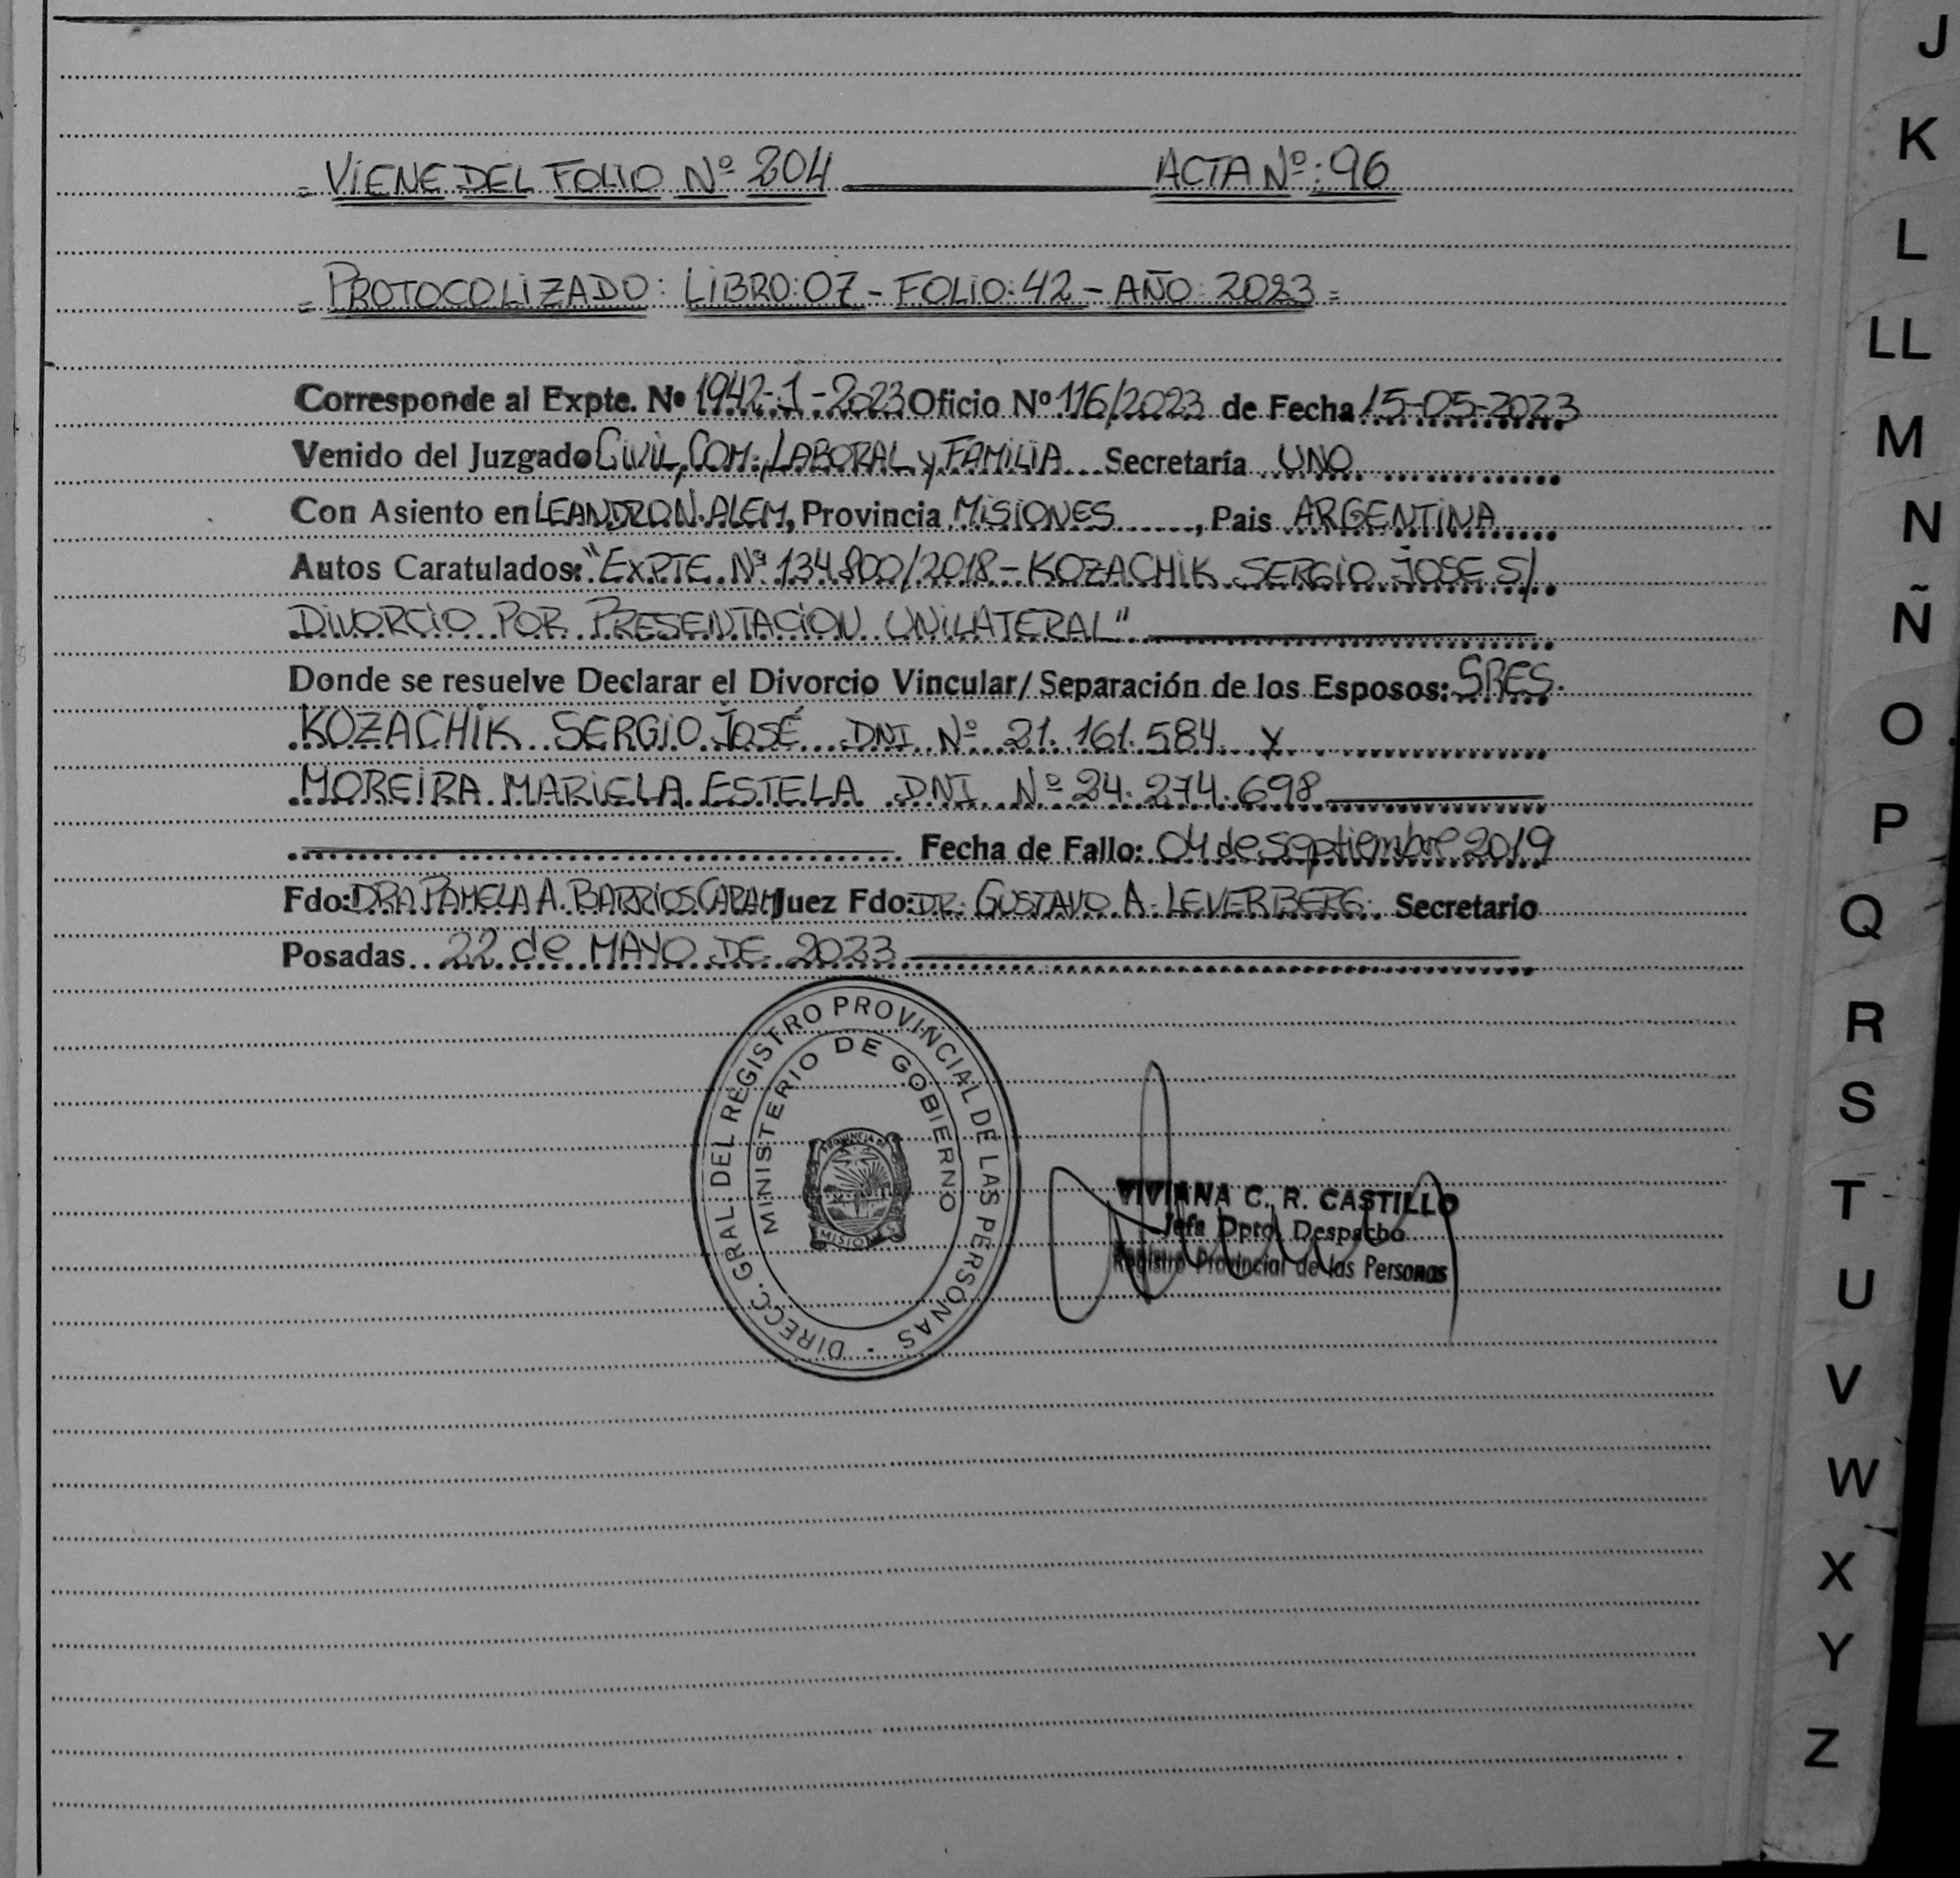 = VIENE DEL FOLIO Nº 204 ACTA Nº: 96
= PROTOCOLIZADO: LIBRO: 07 - FOLIO: 42 - AÑO: 2023 =
Corresponde al Expte. Nº 1942-J-2023 Oficio Nº 116/2023 de Fecha 15-05-2023
Venido del Juzgado CIVIL, COM., LABORAL y FAMILIA Secretaría UNO
Con Asiento en LEANDRO N. ALEM, Provincia MISIONES, Pais ARGENTINA
Autos Caratulados: "EXPTE. Nº 134.800/2018 - KOZACHIK SERGIO JOSE S/
DIVORCIO POR PRESENTACION UNILATERAL"
Donde se resuelve Declarar el Divorcio Vincular/Separación de los Esposos: SRES.
KOZACHIK SERGIO JOSÉ DNI Nº 21.161.584 y
MOREIRA MARIELA ESTELA DNI Nº 24.274.698
Fecha de Fallo: 04 de septiembre 2019
Fdo: DRA PAMELA A. BARRIOS CARAM Juez Fdo: DR. GUSTAVO A. LEVERBERG. Secretario
Posadas 22 de MAYO DE 2023
DIRECC. GRAL. DEL REGISTRO PROVINCIAL DE LAS PERSONAS
MINISTERIO DE GOBIERNO
PROVINCIA DE
MISIONES
VIVIANA C. R. CASTILLO
Jefa Dpto. Despacho
Registro Provincial de las Personas
J
K
L
LL
M
N
Ñ
O
P
Q
R
S
T
U
V
W
X
Y
Z